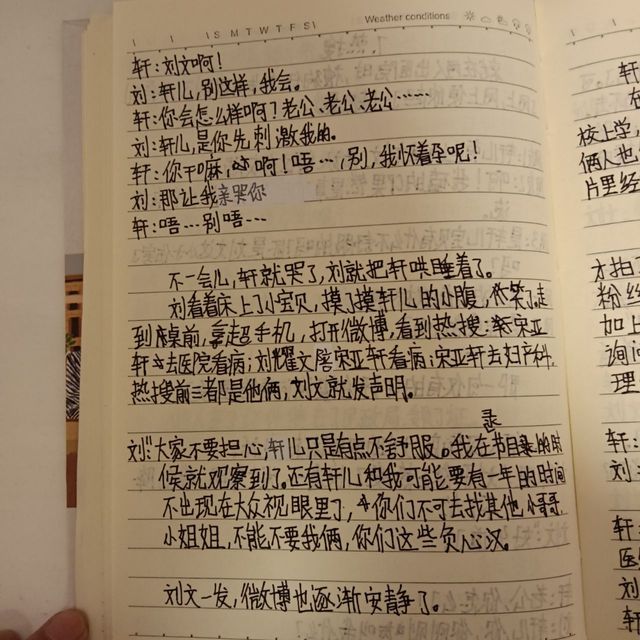 I S M T W T F S I Weather conditions
轩:刘文啊!
刘:轩儿,别这样,我会。
轩:你会怎么样啊?老公、老公、老公……
刘:轩儿,是你先刺激我的。
轩:你干嘛,啊!唔…,别,我怀着孕呢!
刘:那让我亲哭你
轩:唔…别唔…
不一会儿,轩就哭了,刘就把轩哄睡着了。
刘看着床上了小宝贝,摸了摸轩儿的小腹,笑了,走
到桌前,拿起手机,打开微博,看到热搜:宋亚
轩去医院看病;刘耀文陪宋亚轩看病;宋亚轩去妇产科.
热搜前三都是他俩,刘文就发声明。
录
刘:"大家不要担心,轩儿只是有点不舒服。我在节目的时
候就观察到了。还有轩儿和我可能要有一年的时间
不出现在大众视眼里了,你们不可去找其他小哥哥,
小姐姐,不能不要我俩,你们这些负心汉。
刘文一发,微博也逐渐安静了。
轩
校上学,
俩人也
片里经
才拍了
粉丝
加上
询问
理
轩:
刘:
轩:
医
刘
轩